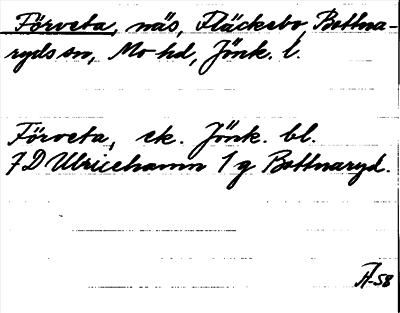 Förveta, näs, Fläckebo, Bottna-
ryds sn, Mo hd, Jönk. l.
Förveta, ek. Jönk. bl.
7 D Ulricehamn 1 g Bottnaryd.